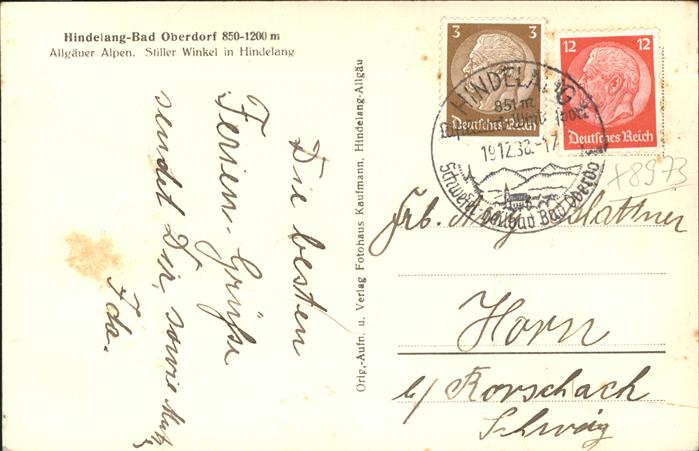 Hindelang-Bad Oberdorf 850-1200 m
Allgäuer Alpen. Stiller Winkel in Hindelang
Die besten
Ferien-Grüße
sendet Dir, sowie
Ida.
Orig.-Aufn. u. Verlag Fotohaus Kaufmann, Hindelang-Allgäu
3 3
Deutsches Reich
12 12
Deutsches Reich
HINDELANG
851 m
19.12.38.-17
Schwefel-Moorbad Bad Oberdorf
+8973
Mattner
Horn
b/ Rorschach
Schweiz